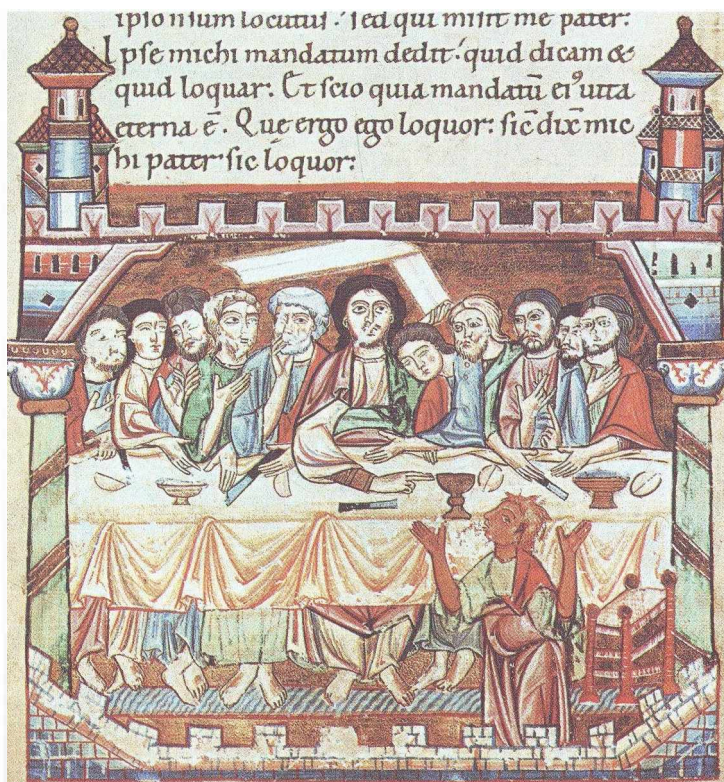 ipso n sum locutus. Sed qui misit me pater:
Ipse michi mandatum dedit. quid dicam &
quid loquar. Et scio quia mandatū ei⁹ uita
eterna ē. Que ergo ego loquor: sic dix̄ mic
hi pater sic loquor: